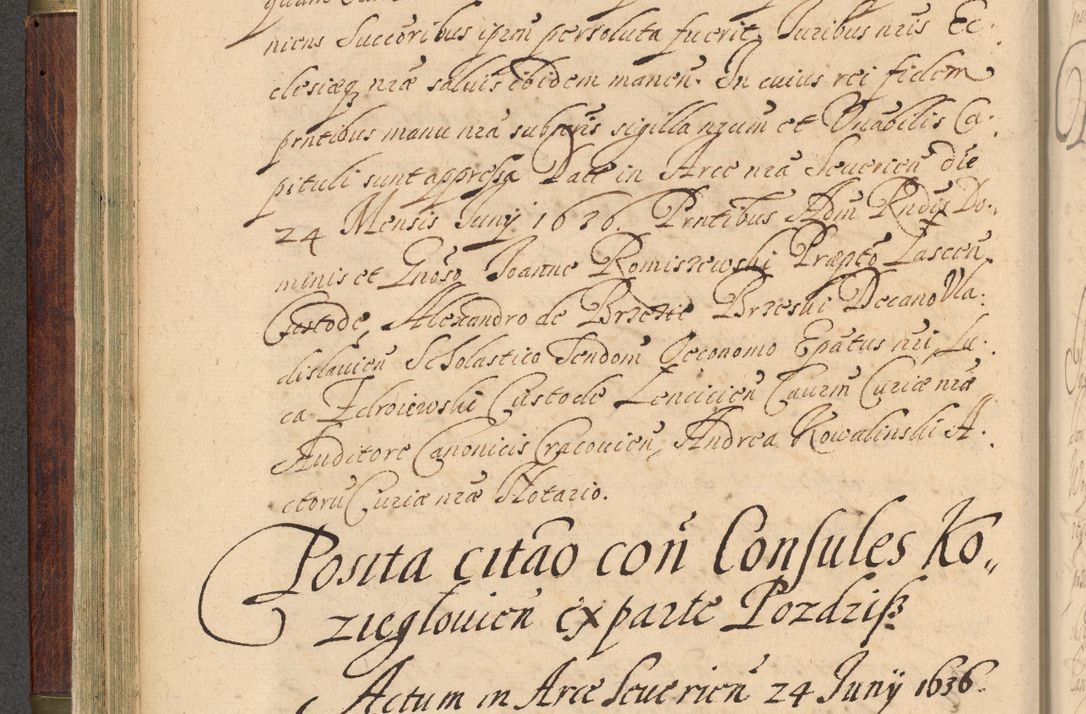 niens Succoribus ipsoru persoluta fuerit, Iuribus nris Ec-
clesiæq nræ saluis ibidem manen. In cuius rei fidem
prntibus manu nra subscris sigilla nrum et Vnabilis Ca-
pituli sunt appressa. Datt in Arce nra Seuerien die
24 Mensis Iunij 1636. Prntibus Adm Rndis Do-
minis et Gnoso Ioanne Romiszewski Præpto Lascen
Custode, Alexandro de Brzezie Brzeski Decano Vla-
dislauien Scholastico Sendom Oeconomo Epatus nri, Lu-
ca Zdroiewski Custode Lencicien Caurm Curiæ nræ
Auditore Canonicis Cracouien, Andrea Kowalinski A-
ctoru Curiæ nræ Notario.
Posita citao con Consules Ko„
zieglouien ex parte Pozdzisz
Actum in Arce Seuerien 24 Junij 1636.